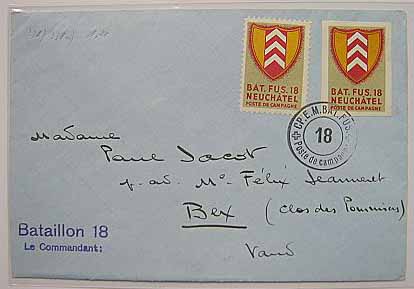 BAT. FUS. 18
NEUCHÂTEL
POSTE DE CAMPAGNE
BAT. FUS. 18
NEUCHÂTEL
POSTE DE CAMPAGNE
CP. E.M. BAT. FUS.
18
Poste de campagne
Madame
Paul Jacot
p. ad. Me. Félix Jeanneret
Bex (Clos des Pommiers)
Vaud
Bataillon 18
Le Commandant: